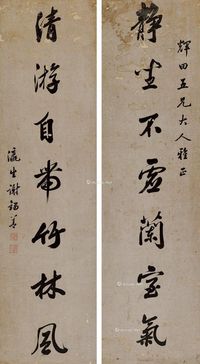 輝田五兄大人雅正
靜坐不虛蘭室氣
清游自帶竹林風
瀛生謝錫